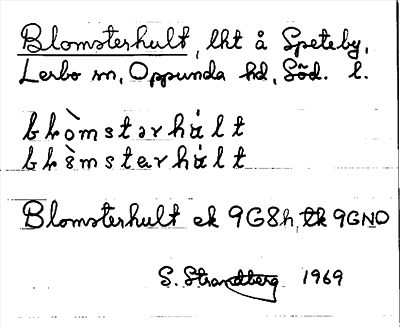 Blomsterhult, lht å Speteby,
Lerbo sn, Oppunda hd, Söd. l.
bḷòmstərhúlt
bḷòmstərhúlt
Blomsterhult ek 9G8h, tk 9GNO
S. Strandberg 1969